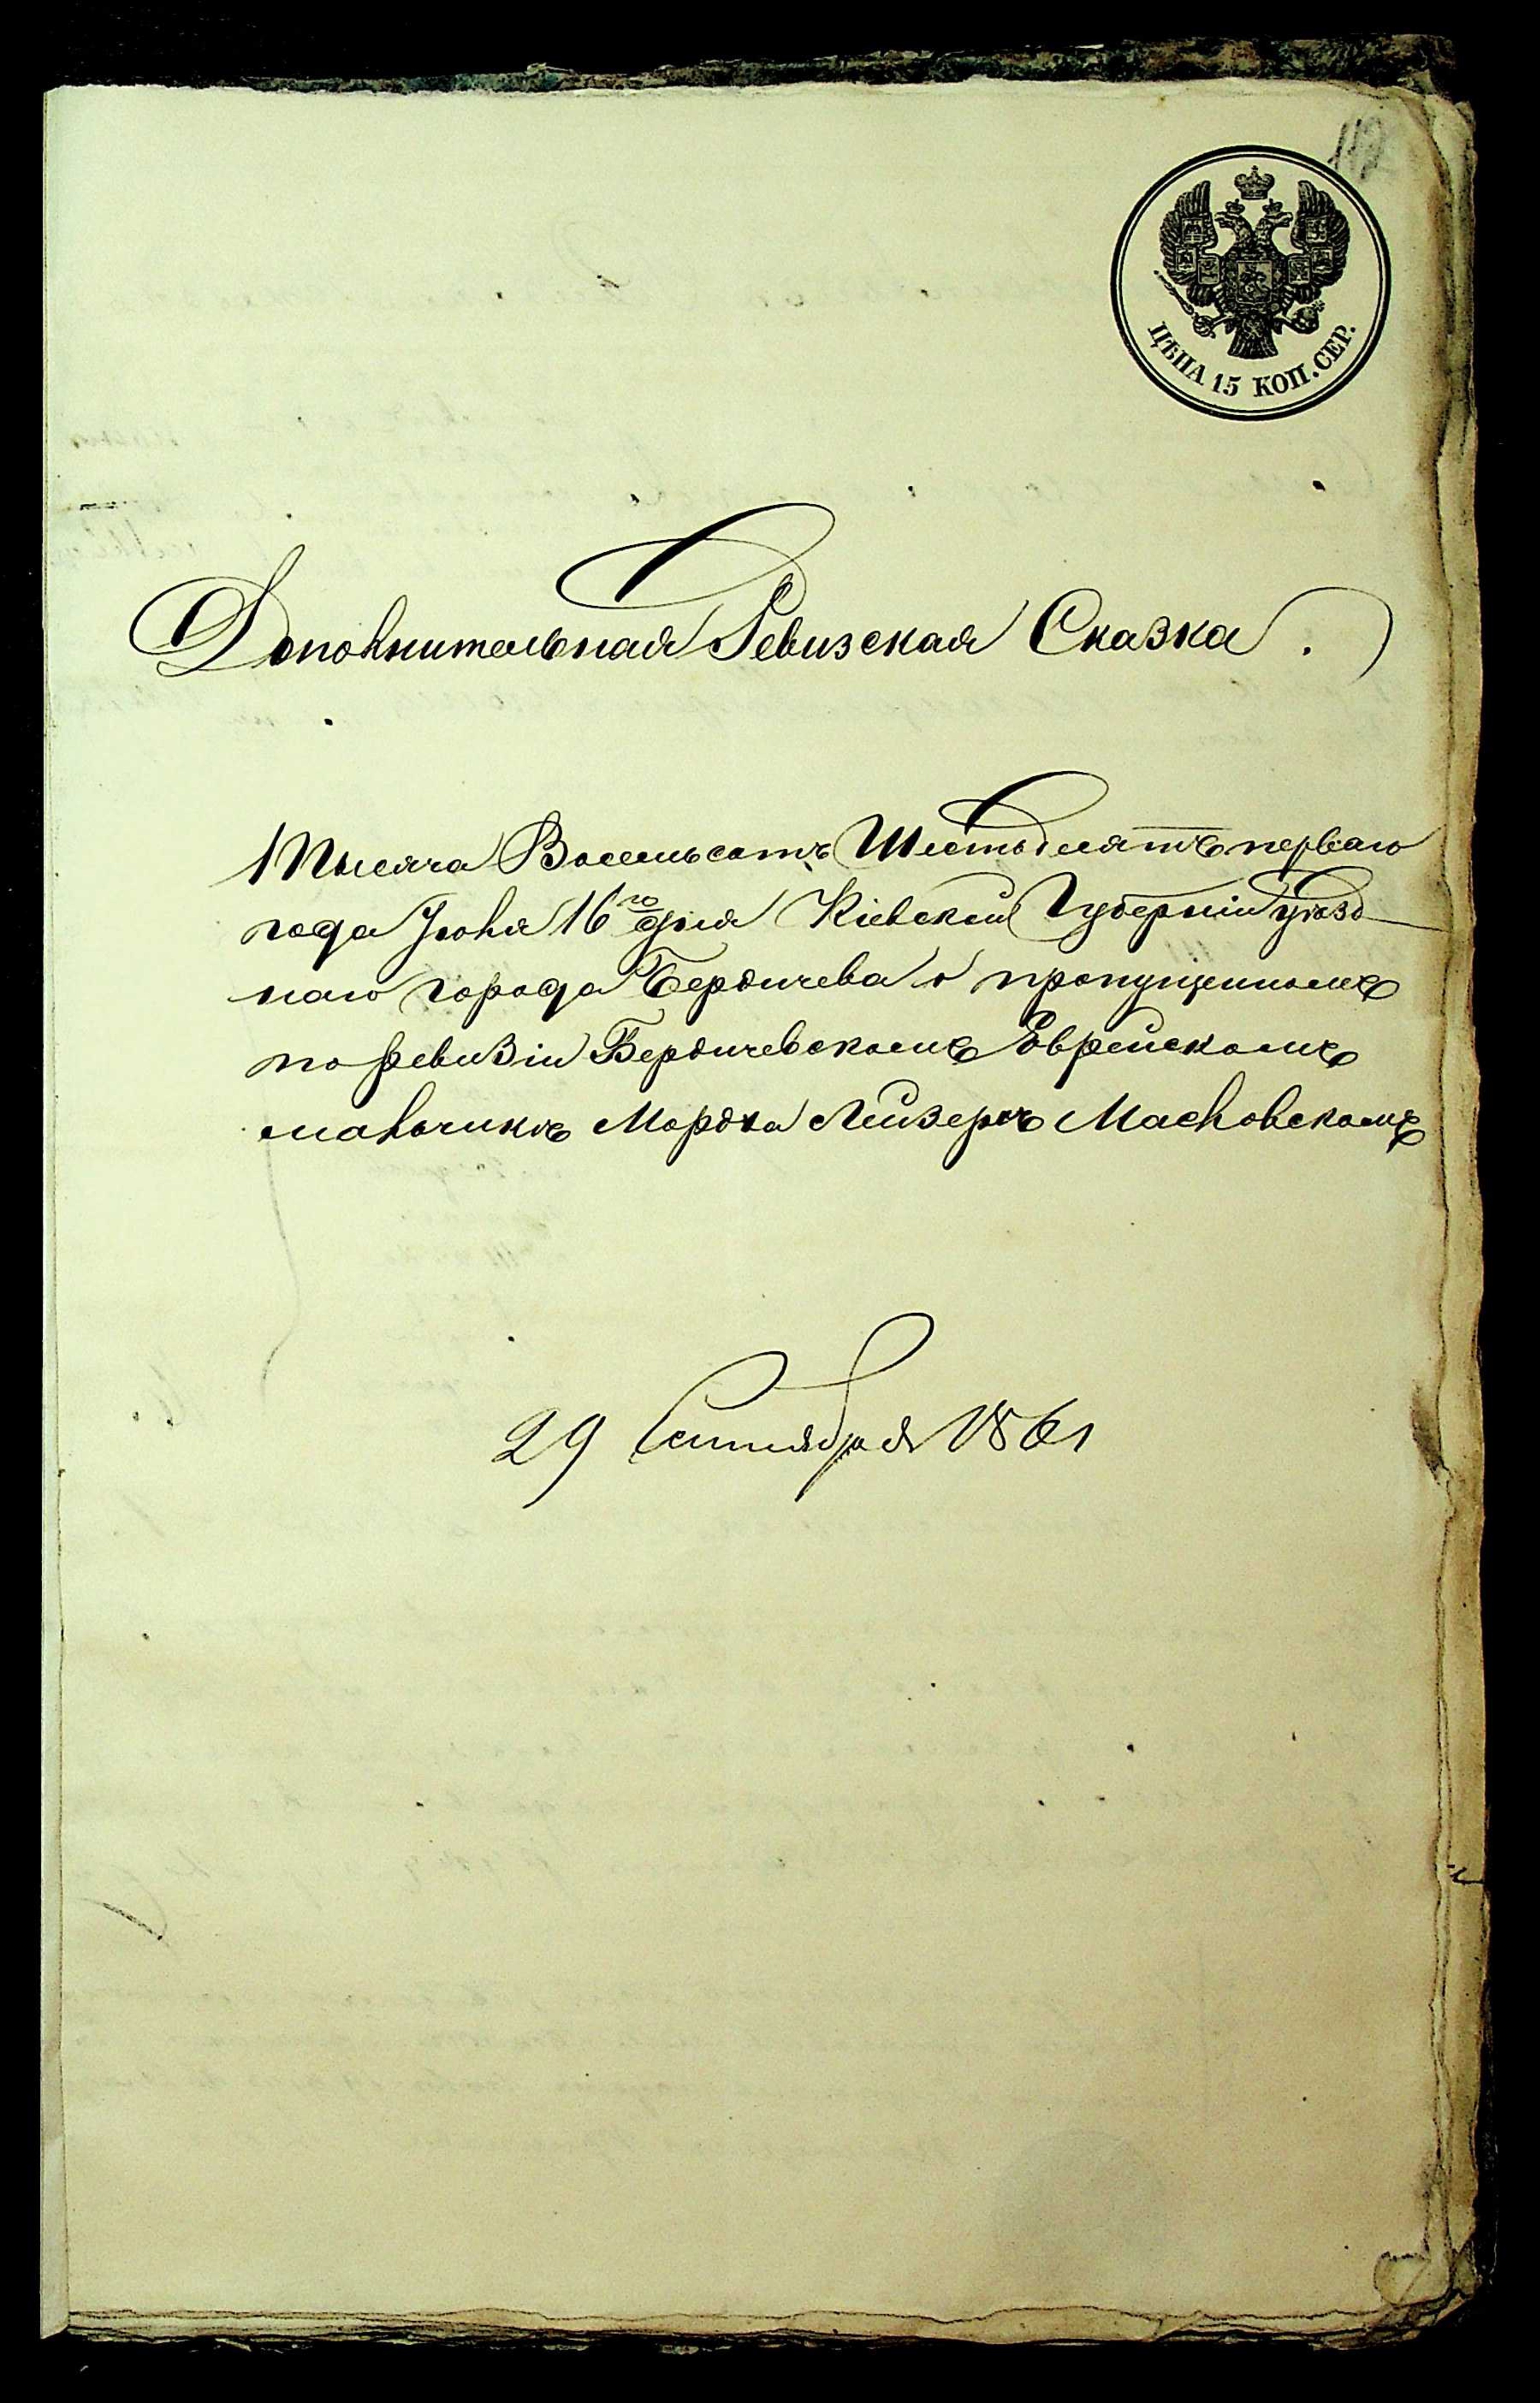 112
ЦѢНА 15 КОП. СЕР.
Дополнительная Ревизская Сказка.
Тысяча Восемьсотъ Шестьдесятъ перваго
года Іюля 16го дня Кіевской Губерніи уѣзд
наго города Бердичева о пропущенномъ
по ревизіи Бердичевскомъ Еврейскомъ
мальчикѣ Мордка Лейзеръ Масловскомъ
29 Сентября 1861